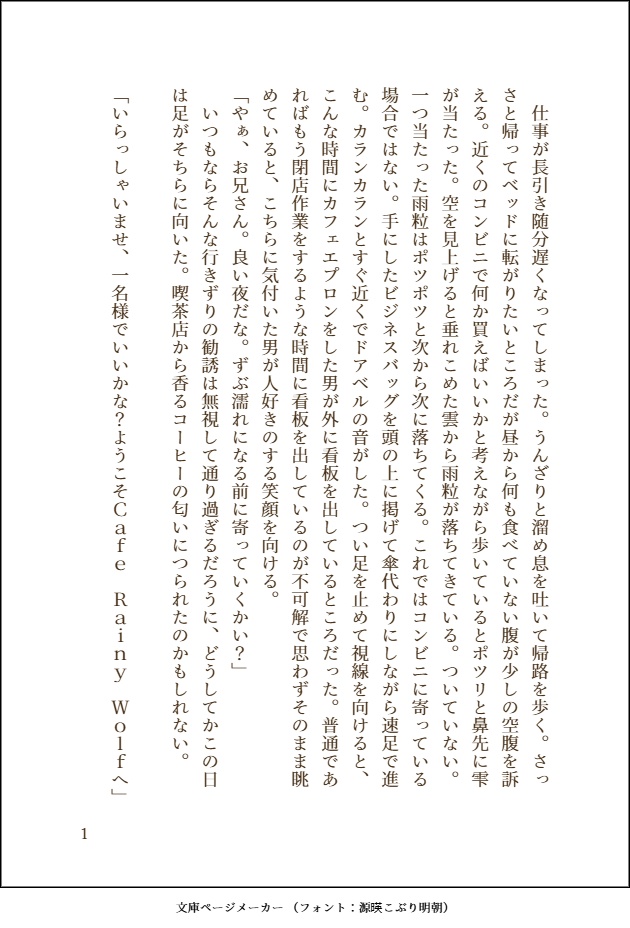 仕事が長引き随分遅くなってしまった。うんざりと溜め息を吐いて帰路を歩く。さっ
さと帰ってベッドに転がりたいところだが昼から何も食べていない腹が少しの空腹を訴
える。近くのコンビニで何か買えばいいかと考えながら歩いているとポツリと鼻先に雫
が当たった。空を見上げると垂れこめた雲から雨粒が落ちてきている。ついていない。
一つ当たった雨粒はポツポツと次から次に落ちてくる。これではコンビニに寄っている
場合ではない。手にしたビジネスバッグを頭の上に掲げて傘代わりにしながら速足で進
む。カランカランとすぐ近くでドアベルの音がした。つい足を止めて視線を向けると、
こんな時間にカフェエプロンをした男が外に看板を出しているところだった。普通であ
ればもう閉店作業をするような時間に看板を出しているのが不可解で思わずそのまま眺
めていると、こちらに気付いた男が人好きのする笑顔を向ける。
「やぁ、お兄さん。良い夜だな。ずぶ濡れになる前に寄っていくかい？」
　いつもならそんな行きずりの勧誘は無視して通り過ぎるだろうに、どうしてかこの日
は足がそちらに向いた。喫茶店から香るコーヒーの匂いにつられたのかもしれない。
「いらっしゃいませ、一名様でいいかな？ようこそＣａｆｅ　Ｒａｉｎｙ　Ｗｏｌｆへ」
1
文庫ページメーカー （フォント：源暎こぶり明朝）